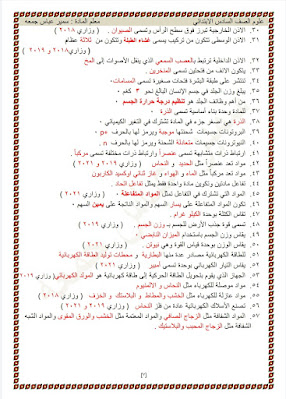 علوم الصف السادس الابتدائي معلم المادة : سمير عباس جمعه
٣٠. الاذن الخارجية تبرز فوق سطح الرأس وتسمى الصيوان . ( وزاري ٢٠١٨ )
٣١. الاذن الوسطى تتكون من تركيب يسمى غشاء الطبلة وتتكون من ثلاثة عظام
( وزاري ٢٠١٨ و ٢٠١٩ )
٣٢. الاذن الداخلية ترتبط بالعصب السمعي الذي ينقل الأصوات إلى المخ
٣٣. يتكون الانف من فتحتين تسمى المنخرين .
٣٤. تنتشر على طبقة البشرة فتحات صغيرة تسمى المسامات .
٣٥. يبلغ وزن الجلد في جسم الانسان البالغ نحو ٣ كغم
٣٦. من أهم وظائف الجلد هو تنظيم درجة حرارة الجسم .
٣٧. للمادة وحدة بناء أساسية تسمى الذرة
٣٨. الذرة هي اصغر جزء في المادة تشترك في التغير الكيميائي .
٣٩. البروتونات جسيمات شحنتها موجبة ويرمز لها بالحرف p+
٤٠. النيوترونات جسيمات متعادلة الشحنة ويرمز لها بالحرف n
٤١. ارتباط ذرات متشابهة تسمى عنصراً وارتباط ذرات مختلفة تسمى مركباً .
٤٢. مواد تعد عنصراً مثل الحديد و النحاس ( وزاري ٢٠١٩ و ٢٠٢١ )
٤٣. مواد تعد مركباً مثل الماء و الهواء و غاز ثنائي اوكسيد الكاربون
٤٤. تفاعل مادتين وتكوين مادة واحدة فقط يمثل تفاعل اتحاد .
٤٥. المواد التي تشترك في التفاعل تمثل المواد المتفاعلة . ( وزاري ٢٠٢١ )
٤٦. تكون المواد المتفاعلة على يسار السهم والمواد الناتجة على يمين السهم .
٤٧. تقاس الكتلة بوحدة الكيلو غرام .
٤٨. تسمى قوة جذب الأرض للجسم بـ وزن الجسم . ( وزاري ٢٠١٩ )
٤٩. يقاس وزن الجسم باستخدام الميزان النابضي .
٥٠. يقاس الوزن بوحدة قياس القوة وهي نيوتن . ( وزاري ٢٠٢١ )
٥١. للطاقة الكهربائية مصادر عدة منها البطارية و محطات توليد الطاقة الكهربائية
٥٢. يقاس التيار الكهربائي بوحدة تسمى أمبير ( وزاري ٢٠٢١ )
٥٣. الجهاز الذي يقوم بتحويل الطاقة الحركية إلى طاقة كهربائية هو المولد الكهربائي وزاري ٢٠١٩
٥٤. مواد موصلة للكهرباء مثل النحاس و الالمنيوم
٥٥. مواد عازلة للكهرباء مثل الخشب والمطاط و البلاستك و الخزف ( وزاري ٢٠١٨ )
٥٦. تصنع الأسلاك الكهربائية عادة من فلز النحاس ( وزاري ٢٠١٩ و ٢٠٢١ )
٥٧. المواد الشفافة مثل الزجاج الصافي والمواد المعتمة مثل الخشب والورق المقوى والمواد الشبه
الشفافة مثل الزجاج المحبب والبلاستيك .